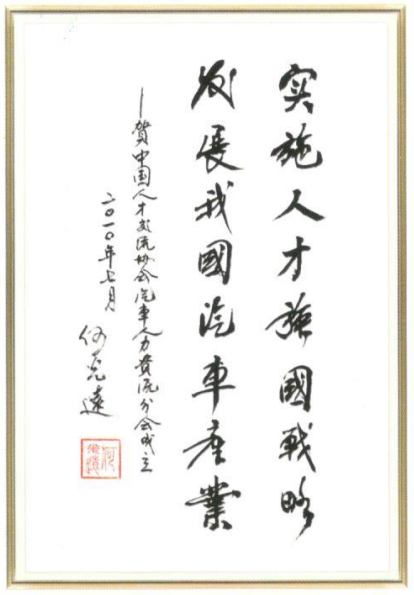 实施人才强國戰略
发展我國汽車產業
—賀中国人才交流协会汽車人力資源分会成立
二〇一〇年七月
何光遠